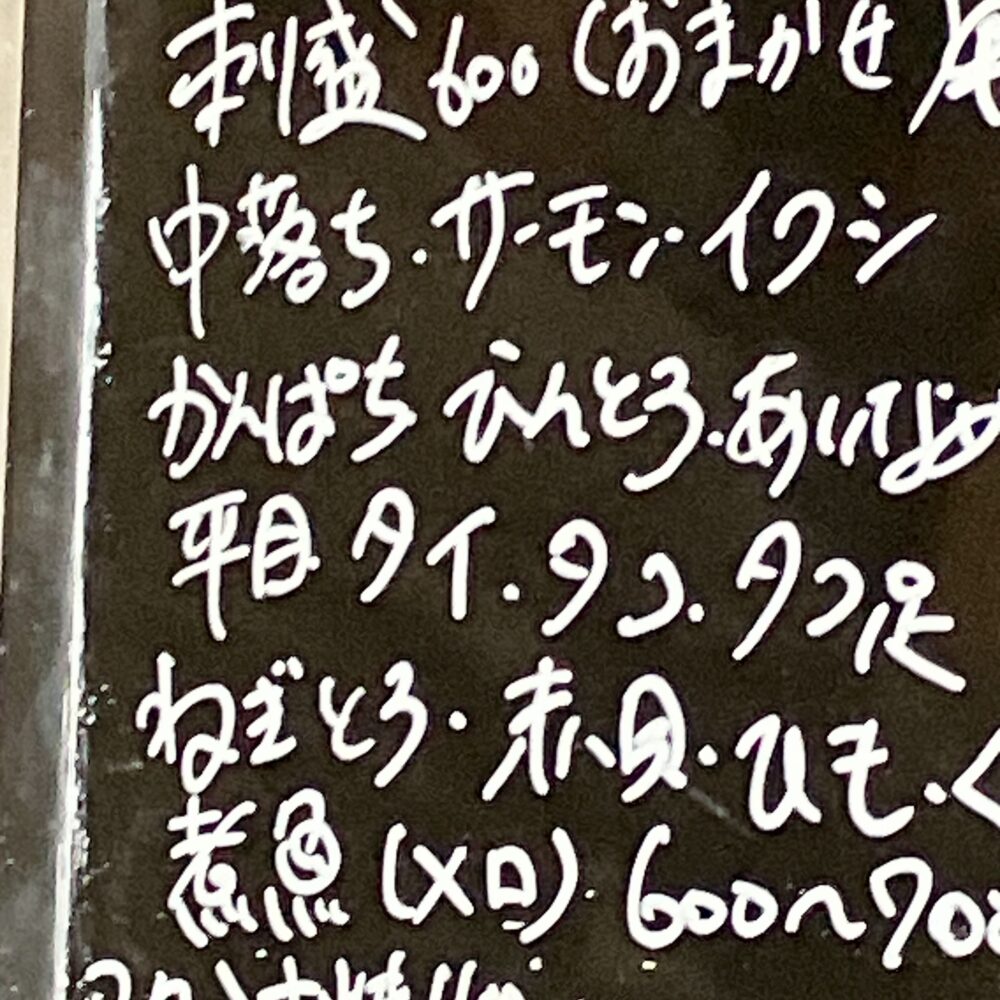 刺盛 600 (おまかせ)
中落ち・サーモン・イワシ
かんぱち びんとろ.あいなめ
平目 タイ.タコ.タコ足
ねぎとろ・赤貝・ひも・く
煮魚(メロ) 600~700